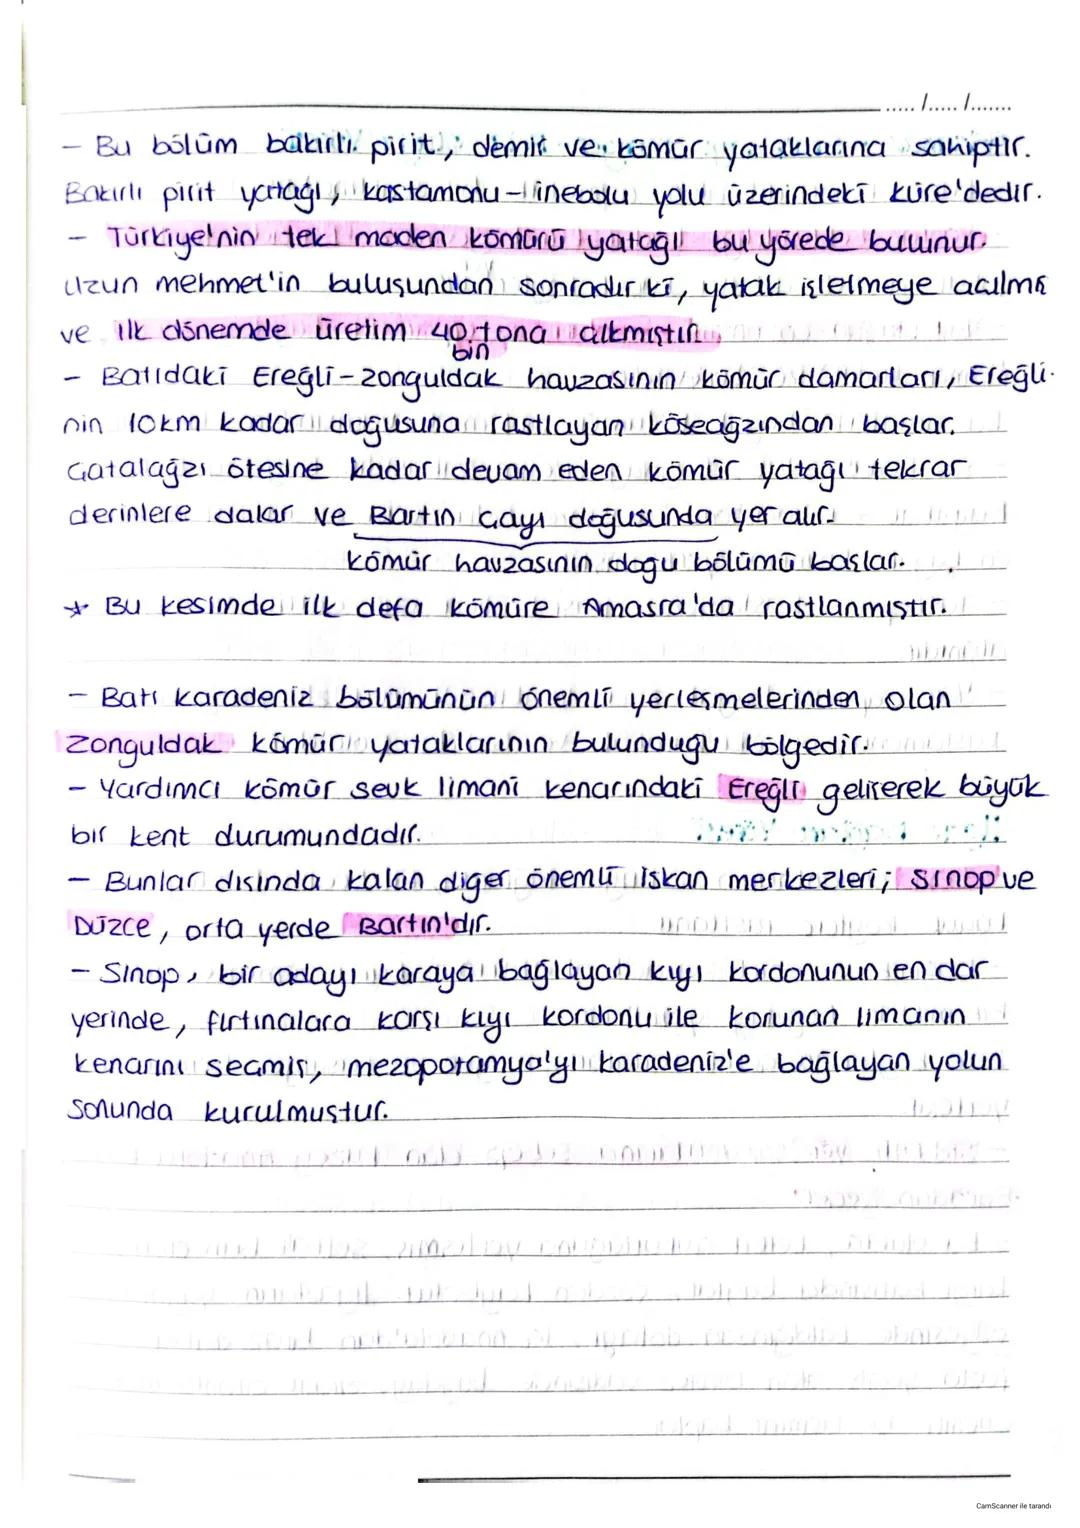 ...../...../.......
- Bu bölüm bakırlı pirit, demir ve kömür yataklarına sahiptir.
Bakırlı pirit yatağı, Kastamonu-İnebolu yolu üzerindeki Küre'dedir.
- Türkiye'nin tek maden kömürü yatağı bu yörede bulunur.
Uzun mehmet'in buluşundan sonradır ki, yatak işletmeye açılmış
ve ilk dönemde üretim 40 tona çıkmıştır.
bin
- Batıdaki Ereğli-Zonguldak havzasının kömür damarları, Ereğli-
nin 10km kadar doğusuna rastlayan köseağzından başlar.
Çatalağzı ötesine kadar devam eden kömür yatağı tekrar
derinlere dalar ve Bartın Çayı doğusunda yer alır.
kömür havzasının dogu bölümü başlar.
* Bu kesimde ilk defa kömüre Amasra'da rastlanmıştır.
- Batı karadeniz bölümünün önemli yerleşmelerinden olan
Zonguldak kömür yataklarının bulunduğu bölgedir.
- Yardımcı kömür sevk limanı kenarındaki Ereğli gelişerek büyük
bir kent durumundadır.
- Bunlar dışında kalan diğer önemli iskan merkezleri; Sinop ve
Düzce, orta yerde Bartın'dır.
- Sinop, bir adayı karaya bağlayan kıyı kordonunun en dar
yerinde, fırtınalara karşı kıyı kordonu ile korunan limanın
kenarını seçmiş, mezopotamya'yı karadeniz'e bağlayan yolun
sonunda kurulmuştur.
CamScanner ile tarandı